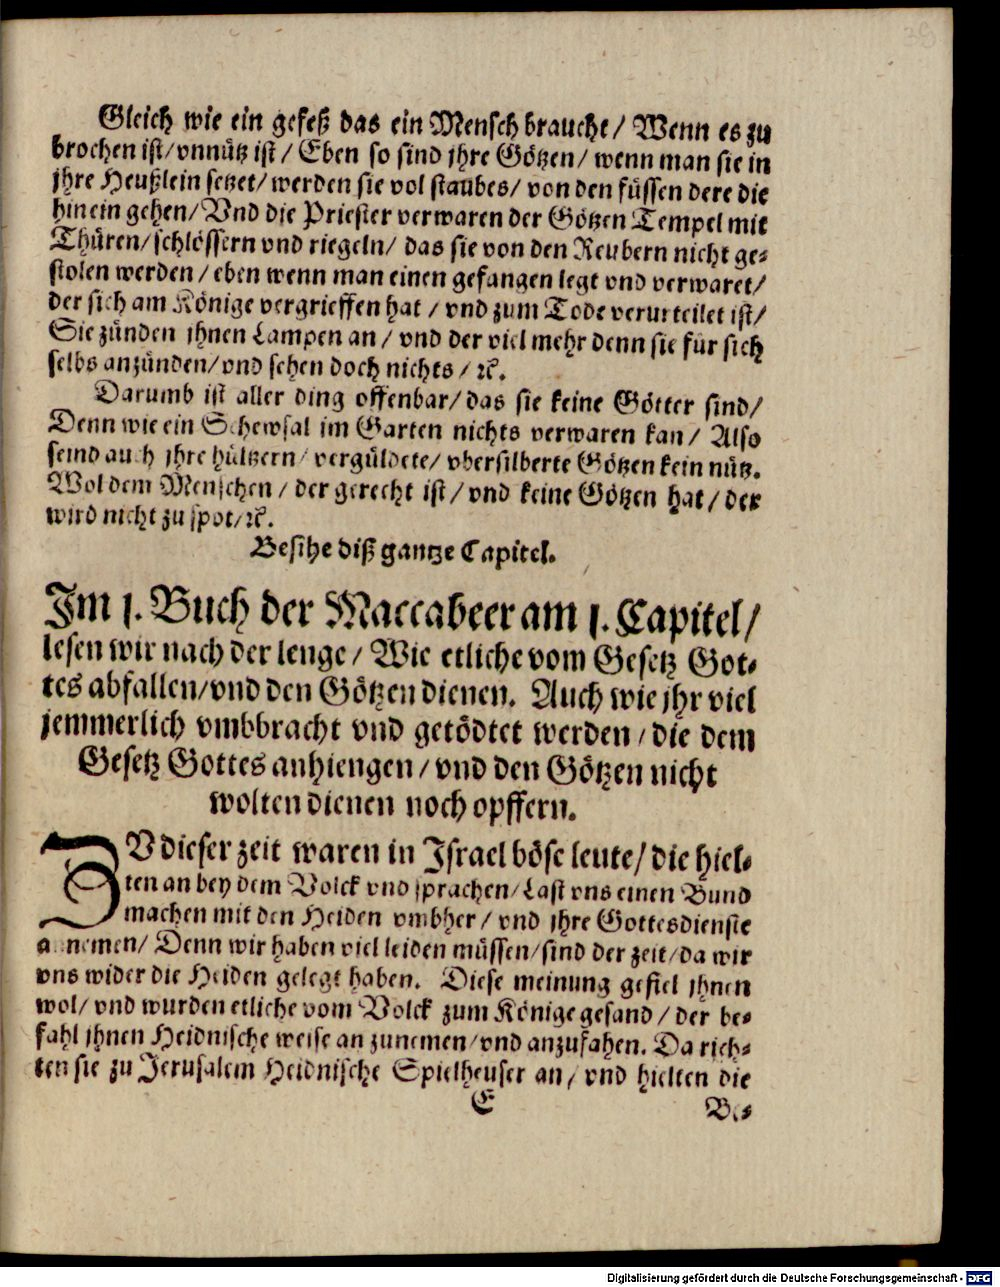 39
Gleich wie ein gefeß das ein Mensch braucht/ Wenn es zu
brochen ist/vnnütz ist/ Eben so sind jhre Götzen/ wenn man sie in
jhre Heußlein setzet/ werden sie vol staubes/ von den füssen dere die
hinein gehen/ Vnd die Priester verwaren der Götzen Tempel mit
Thüren/schlössern vnd riegeln/ das sie von den Reubern nicht ge⸗
stolen werden/ eben wenn man einen gefangen legt vnd verwaret/
der sich am Könige vergrieffen hat/ vnd zum Tode verurteilet ist/
Sie zünden jhnen Lampen an/ vnd der viel mehr denn sie für sich
selbs anzünden/vnd sehen doch nichts/ ꝛc.
Darumb ist aller ding offenbar/ das sie keine Götter sind/
Denn wie ein Schewsal im Garten nichts verwaren kan/ Also
seind auch jhre hültzern/ vergüldete/ vbersilberte Götzen kein nütz.
Wol dem Menschen/ der gerecht ist/ vnd keine Götzen hat/ der
wird nicht zu spot/ꝛc.
Besihe diß gantze Capitel.
Im 1. Buch der Maccabeer am 1. Capitel/
lesen wir nach der lenge/ Wie etliche vom Gesetz Got⸗
tes abfallen/vnd den Götzen dienen. Auch wie jhr viel
jemmerlich vmbbracht vnd getödtet werden/ die dem
Gesetz Gottes anhiengen/ vnd den Götzen nicht
wolten dienen noch opffern.
ZV dieser zeit waren in Israel böse leute/ die hiel⸗
ten an bey dem Volck vnd sprachen/ Last vns einen Bund
machen mit den Heiden vmbher/ vnd jhre Gottesdienste
annemen/ Denn wir haben viel leiden müssen/sind der zeit/da wir
vns wider die Heiden gelegt haben. Diese meinung gefiel jhnen
wol/ vnd wurden etliche vom Volck zum Könige gesand/ der be⸗
fahl jhnen Heidnische weise an zunemen/vnd anzufahen. Da rich⸗
ten sie zu Jerusalem Heidnische Spielheuser an/ vnd hielten die
E
Be⸗
Digitalisierung gefördert durch die Deutsche Forschungsgemeinschaft - DFG